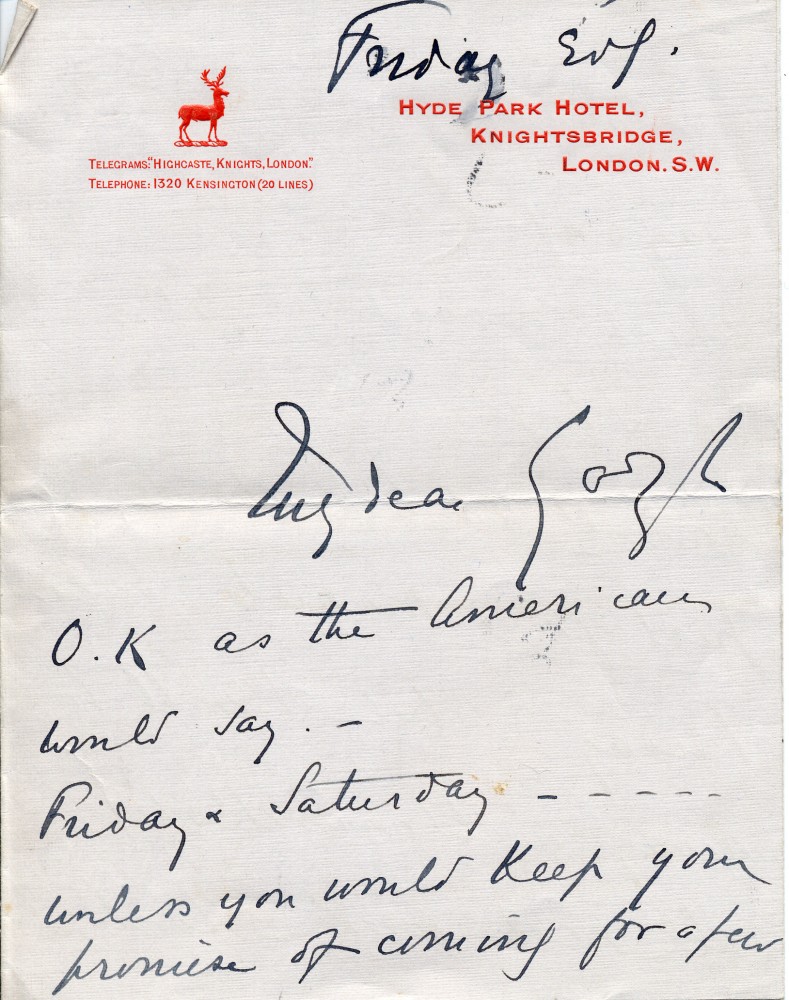 Friday Evg.
HYDE PARK HOTEL,
KNIGHTSBRIDGE,
LONDON. S.W.
TELEGRAMS: "HIGHCASTE, KNIGHTS, LONDON."
TELEPHONE: 1320 KENSINGTON (20 LINES)
My dear Googh
O.K as the Americans
would say. -
Friday & Saturday - - - - -
unless you would keep your
promise of coming for a few